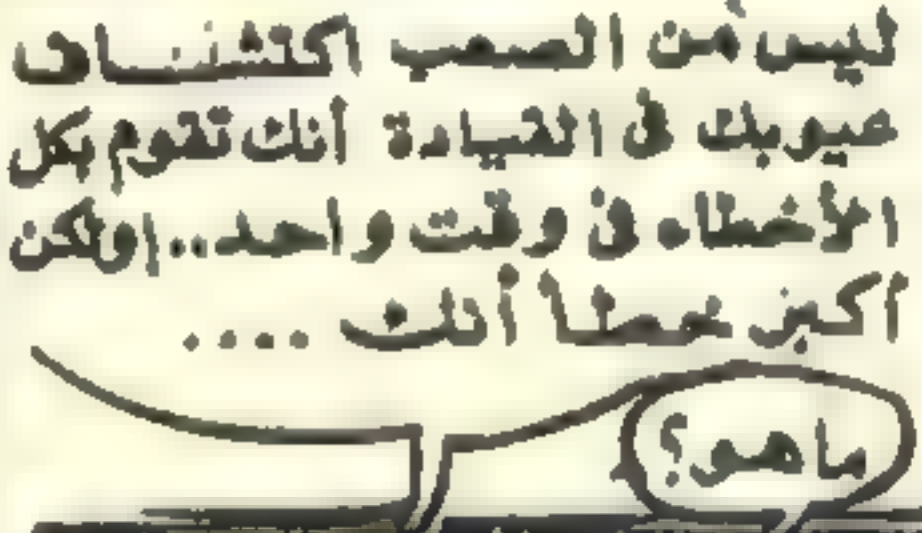 ليس من الصعب اكتشاف
عيوبك فى القيادة أنك تقوم بكل
الأخطاء فى وقت واحد.. ولكن
أكبر خطأ أنك ....
ما هو؟